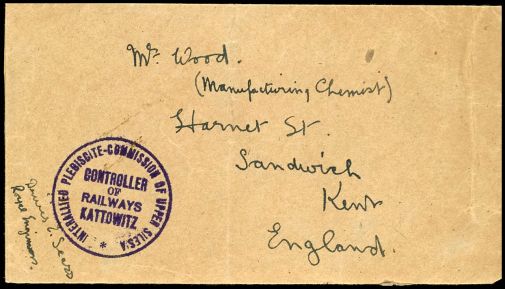 Mr. Wood.
(Manufacturing Chemist)
Harnet St.
Sandwich
Kent
England.
INTERALLIED PLEBISCITE-COMMISSION OF UPPER SILESIA *
CONTROLLER
OF
RAILWAYS
KATTOWITZ
Sears
Royal Engineers.